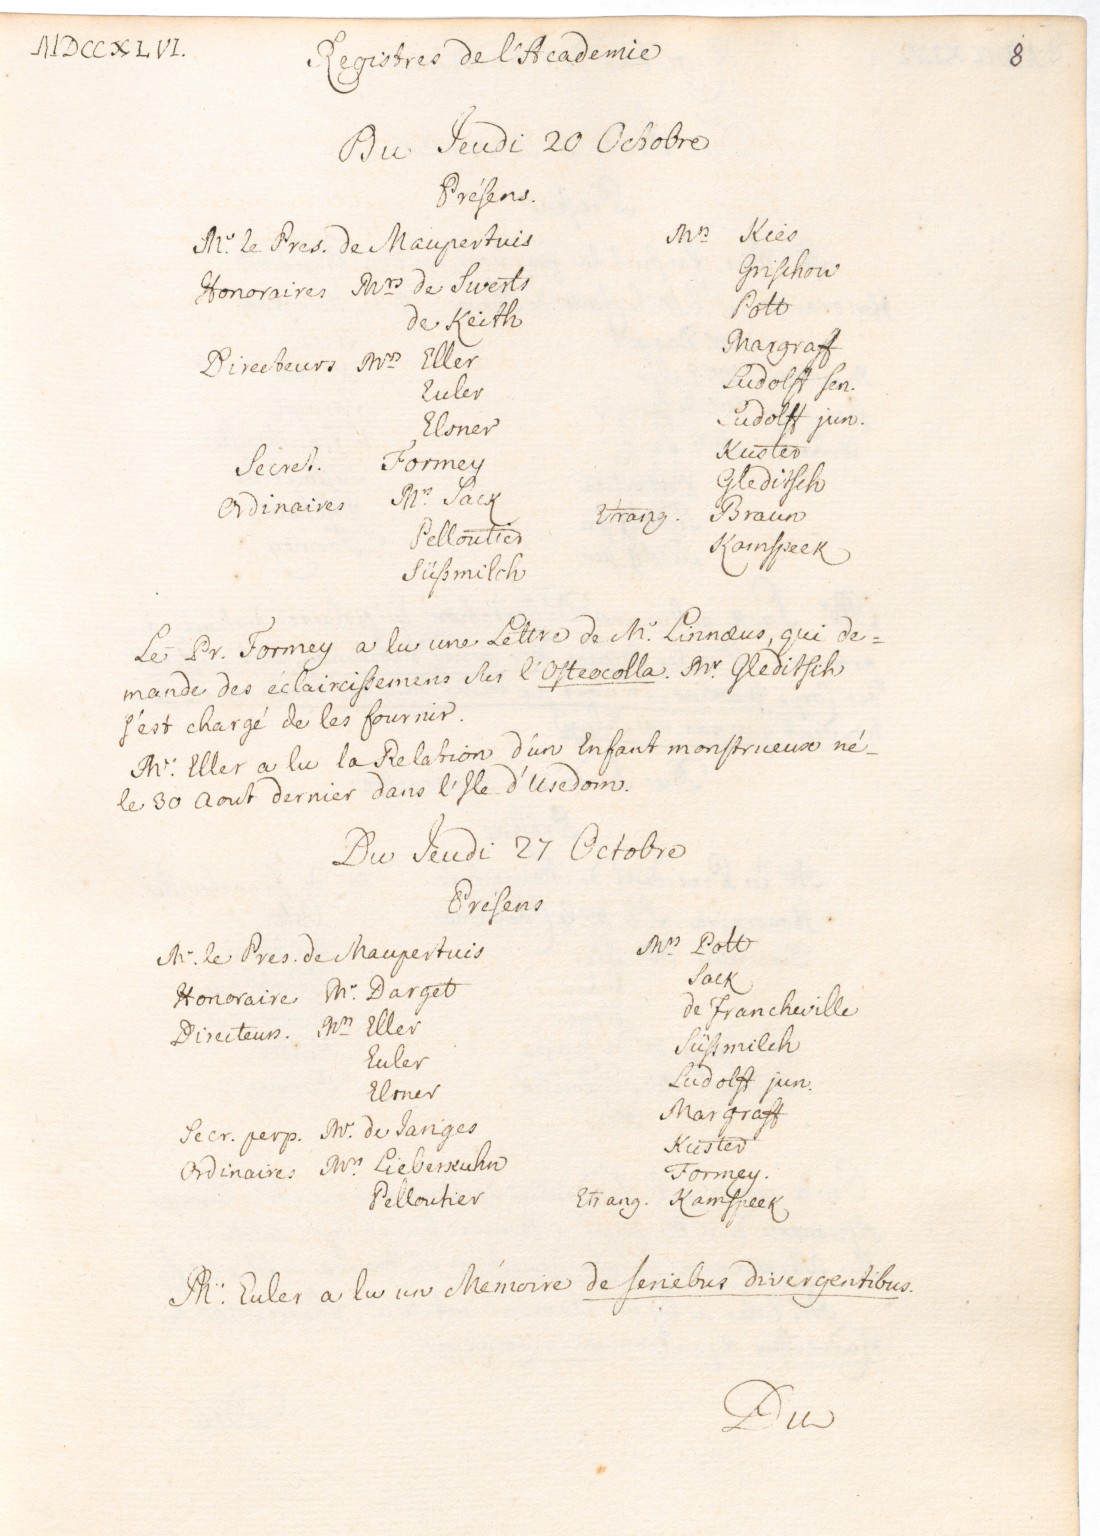 MDCCXLVI.
Registres de l'Academie
8
Du Jeudi 20 Octobre
Présens.
Mr. le Pres. de Maupertuis
Honoraires Mrs de Swerts
de Keith
Directeurs Mrs Eller
Euler
Elsner
Secret. Formey
Ordinaires Mrs Sack
Pelloutier
Süßmilch
Mrs Kies
Grischow
Pott
Margraff
Ludolff sen.
Ludolff jun.
Kuster
Gleditsch
Etrang. Braun
Kamspeck
Le Pr. Formey a lu une Lettre de Mr. Linnæus, qui de=
mande des éclaircissemens sur l'Osteocolla. Mr. Gleditsch
s'est chargé de les fournir.
Mr. Eller a lu la Relation d'un Enfant monstrueux né
le 30 Aout dernier dans l'Ile d'Usedom.
Du Jeudi 27 Octobre
Présens
Mr. le Pres. de Maupertuis
Honoraire Mr. Darget
Directeurs. Mrs Eller
Euler
Elsner
Secr. perp. Mr. de Jariges
Ordinaires Mrs Lieberkuhn
Pelloutier
Mrs Pott
Sack
de Francheville
Süßmilch
Ludolff jun.
Margraff
Kuster
Formey.
Etrang. Kamspeck
Mr. Euler a lu un Mémoire de seriebus divergentibus.
Du